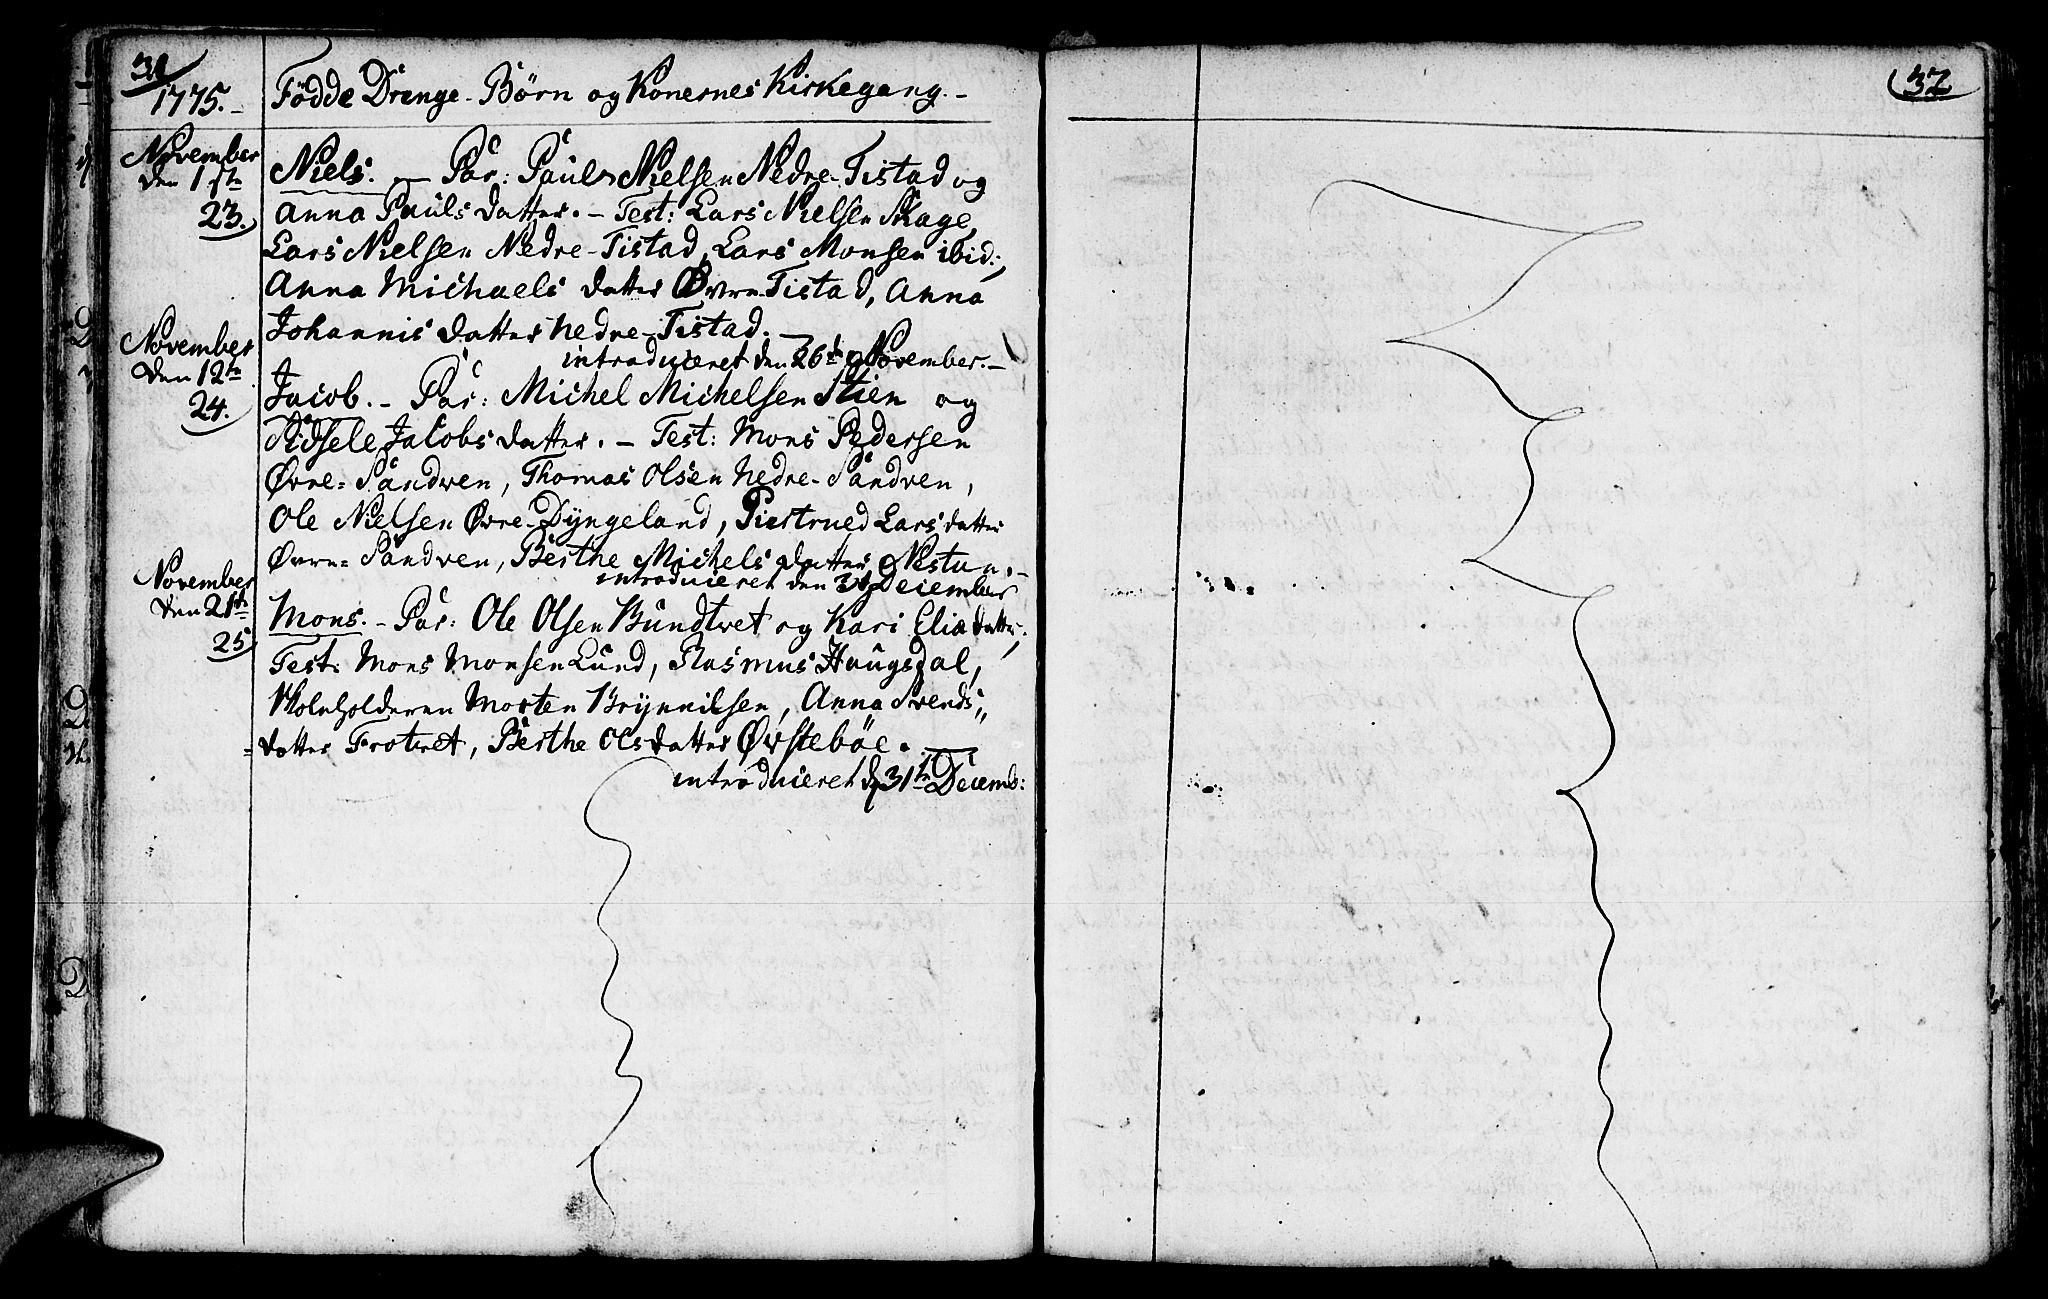 31
1775.-
Födde Drenge-Börn og Konernes Kirkegang.-
November
den 1ste
23.
Niels. - Par: Paul Nielsen Nedre-Tistad og
Anna Pauls datter. - Test: Lars Nielsen Skage,
Lars Nielsen Nedre-Tistad, Lars Monsen ibid:,
Anna Michaels datter Øvre-Tistad, Anna
Johannis datter nedre-Tistad.
introduceret den 26de November.-
November
den 12te
24.
Jacob. - Par: Michel Michelsen Stien og
Sidsele Jacobs datter. - Test: Mons Pedersen
Øvre-Sandven, Thomas Olsen Nedre-Sandven,
Ole Nielsen Øvre-Dyngeland, Datter
Øvre-Sandven, Berthe Michels datter Nestun.-
introduceret den 31 December
November
den 21te
25
Mons. - Par: Ole Olsen Bundtvet og Kari Eliæ datter;
Test: Mons Monsen Lund, Rasmus Haugsdal,
Morten Brynnilsen, Anna Svends
=datter Frotvet, Berthe Olsdatter Ørstebøe.
introduceret d 31te Decemb:
32